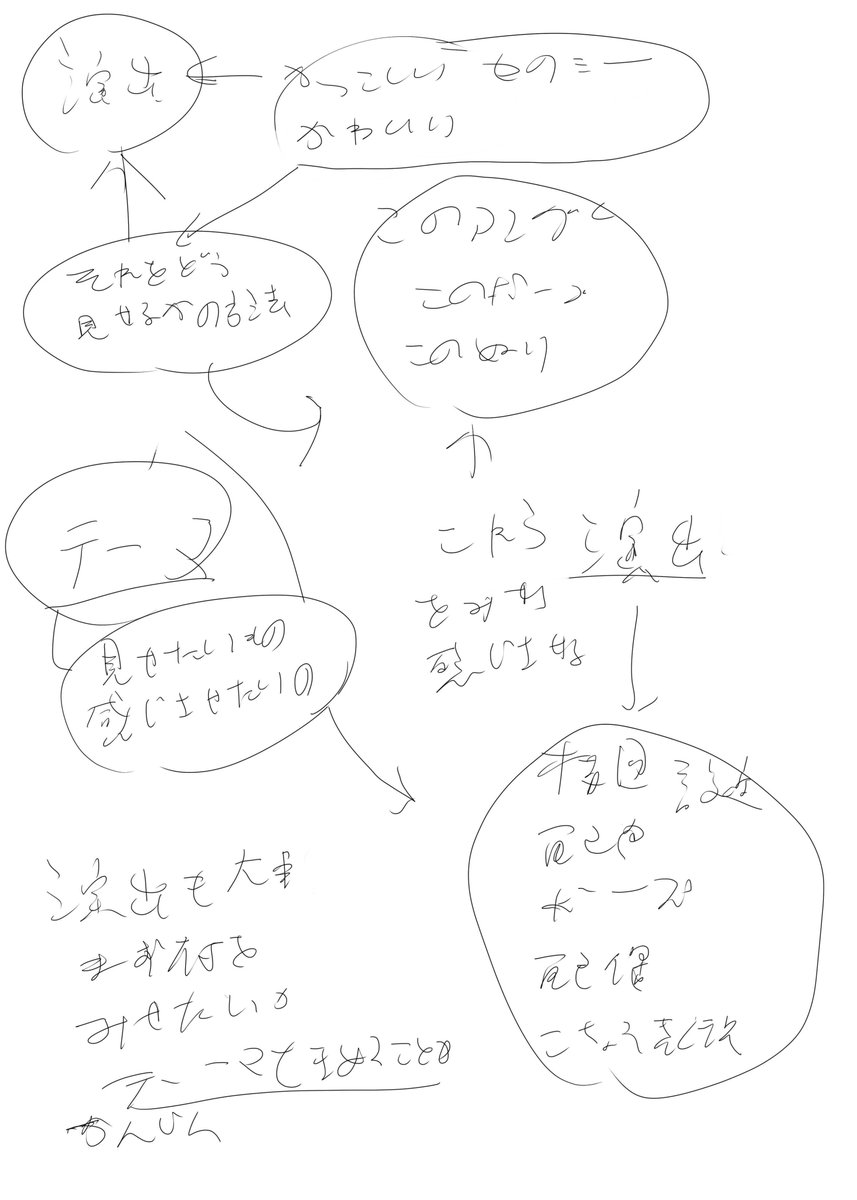 演出
かっこいい ものミー
かわいい
それをどう
見せるかの方法
このアングと
このポーズ
このぬり
テーマ
見せたいもの
感じさせたいの
これら 演出
をみせ
感じさせる
構図
配色
ポーズ
配置
こちょう
演出も大事
まず何を
みせたいか
テーマをきめることが
かんじん